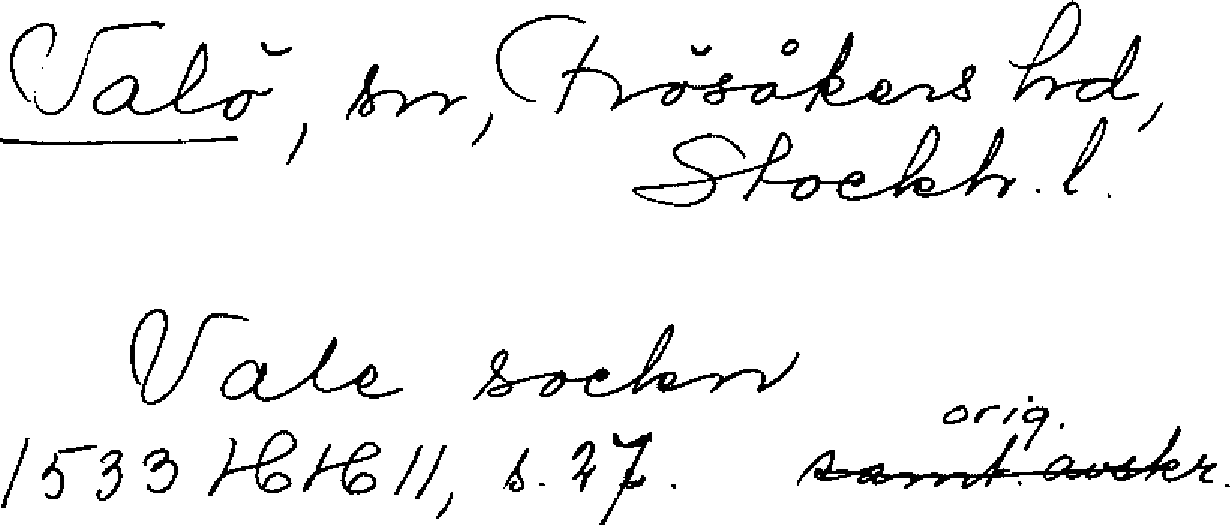 Valö, sn, Frösåkers hd,
Stockh. l.
Vale sockn
orig.
1533 HH 11, s. 27. samt. avskr.